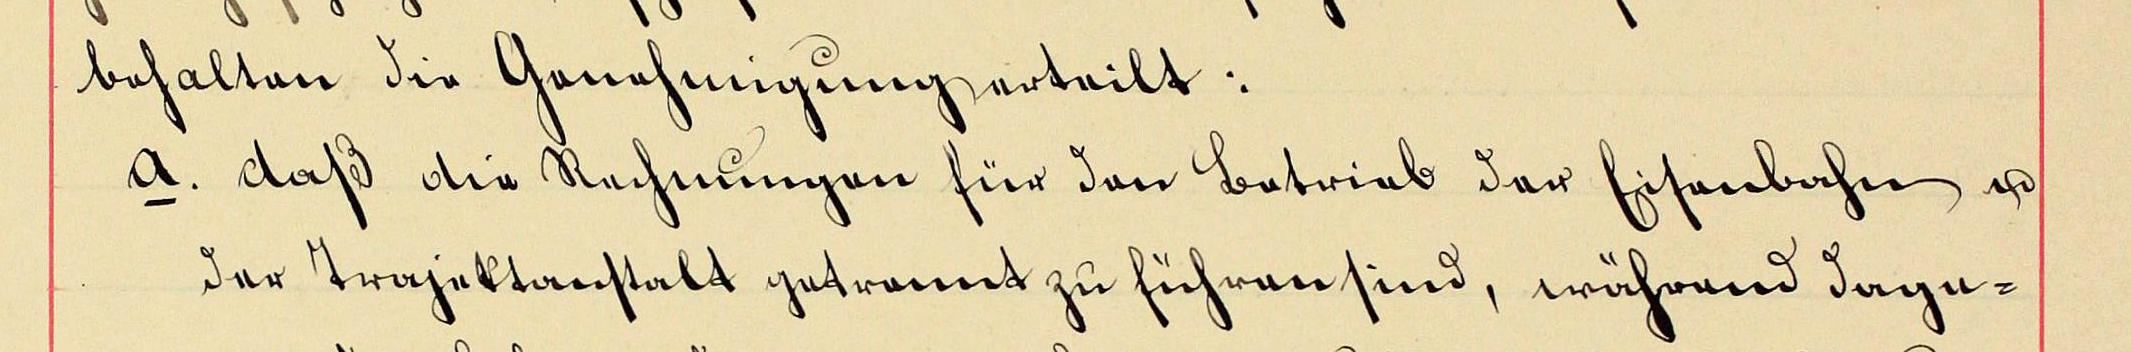 behalten die Genehmigung erteilt:
a. daß die Rechnungen für den Betrieb der Eisenbahn u
der Trajektanstalt getrennt zu führen sind, während dage=